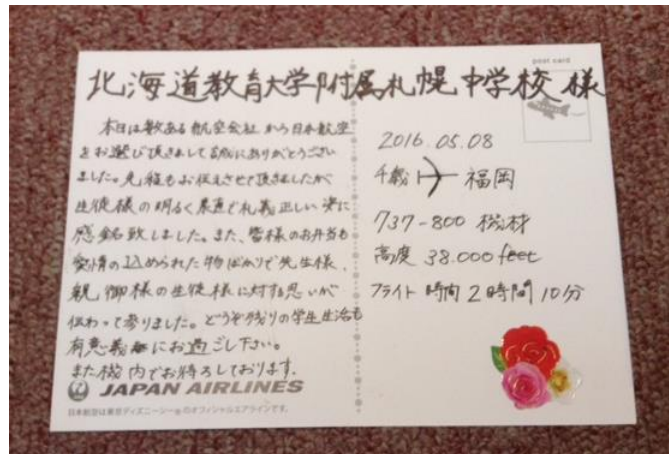 post card
北海道教育大学附属札幌中学校 様
本日は数ある航空会社から日本航空
をお選び頂きまして誠にありがとうござい
ました。先程もお伝えさせて頂きましたが
生徒様の明るく素直で礼義正しい姿に
感銘致しました。また、皆様のお弁当も
愛情の込められた物ばかりで先生様、
親御様の生徒様に対する思いが
伝わって参りました。どうぞ残りの学生生活も
有意義にお過ごし下さい。
また機内でお待ちしております。
JAPAN AIRLINES
日本航空は東京ディズニーシー®のオフィシャルエアラインです。
2016.05.08
千歳 福岡
737-800 機材
高度 38.000 feet
フライト時間 2時間10分